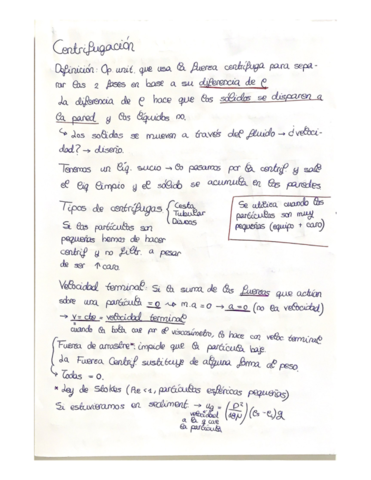 Centrifugación
Definición: Op unit. que usa la fuerza centrífuga para sepa-
rar las 2 fases en base a su diferencia de ρ
La diferencia de ρ hace que los sólidos se disparen a
la pared y los líquidos no.
↳ Los solidos se mueven a través del fluido → ¿veloci-
dad? → diseño.
Tenemos un líq. sucio → lo pasamos por la centrif y sale
el liq limpio y el sólido se acumula en las paredes
Tipos de centrífugas { Cesta
Tubular
Discos
Si las partículas son
pequeñas hemos de hacer
centrif y no filtr. a pesar
de ser ↑ cara
Se utiliza cuando las
partículas son muy
pequeñas (equipo + caro)
Velocidad terminal: Si la suma de las fuerzas que actúan
sobre una partícula = 0 → m·a = 0 → a = 0 (no la velocidad)
→ v = cte = velocidad terminal
cuando la bola cae por el viscosímetro, lo hace con veloc terminal
Fuerza de arrastre: impide que la partícula baje
La Fuerza Centrif sustituye de alguna forma al peso
↳ Todas = 0.
* Ley de Stokes (Re<1, partículas esféricas pequeñas)
Si estuvieramos en sediment → ug = (D²/18μ)(ρs - ρl)g
velocidad
a la q cae
la partícula